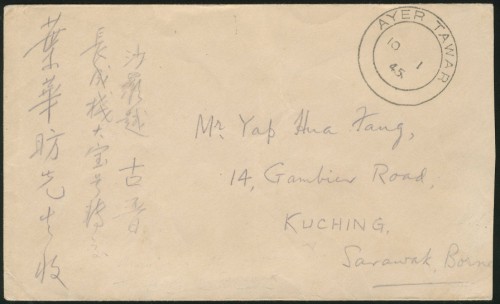 AYER TAWAR
10 1
45
沙羅越 古晋
長成棧大宝号轉交
葉華昉先生收
Mr. Yap Hua Fang,
14, Gambier Road,
KUCHING.
Sarawak, Borneo